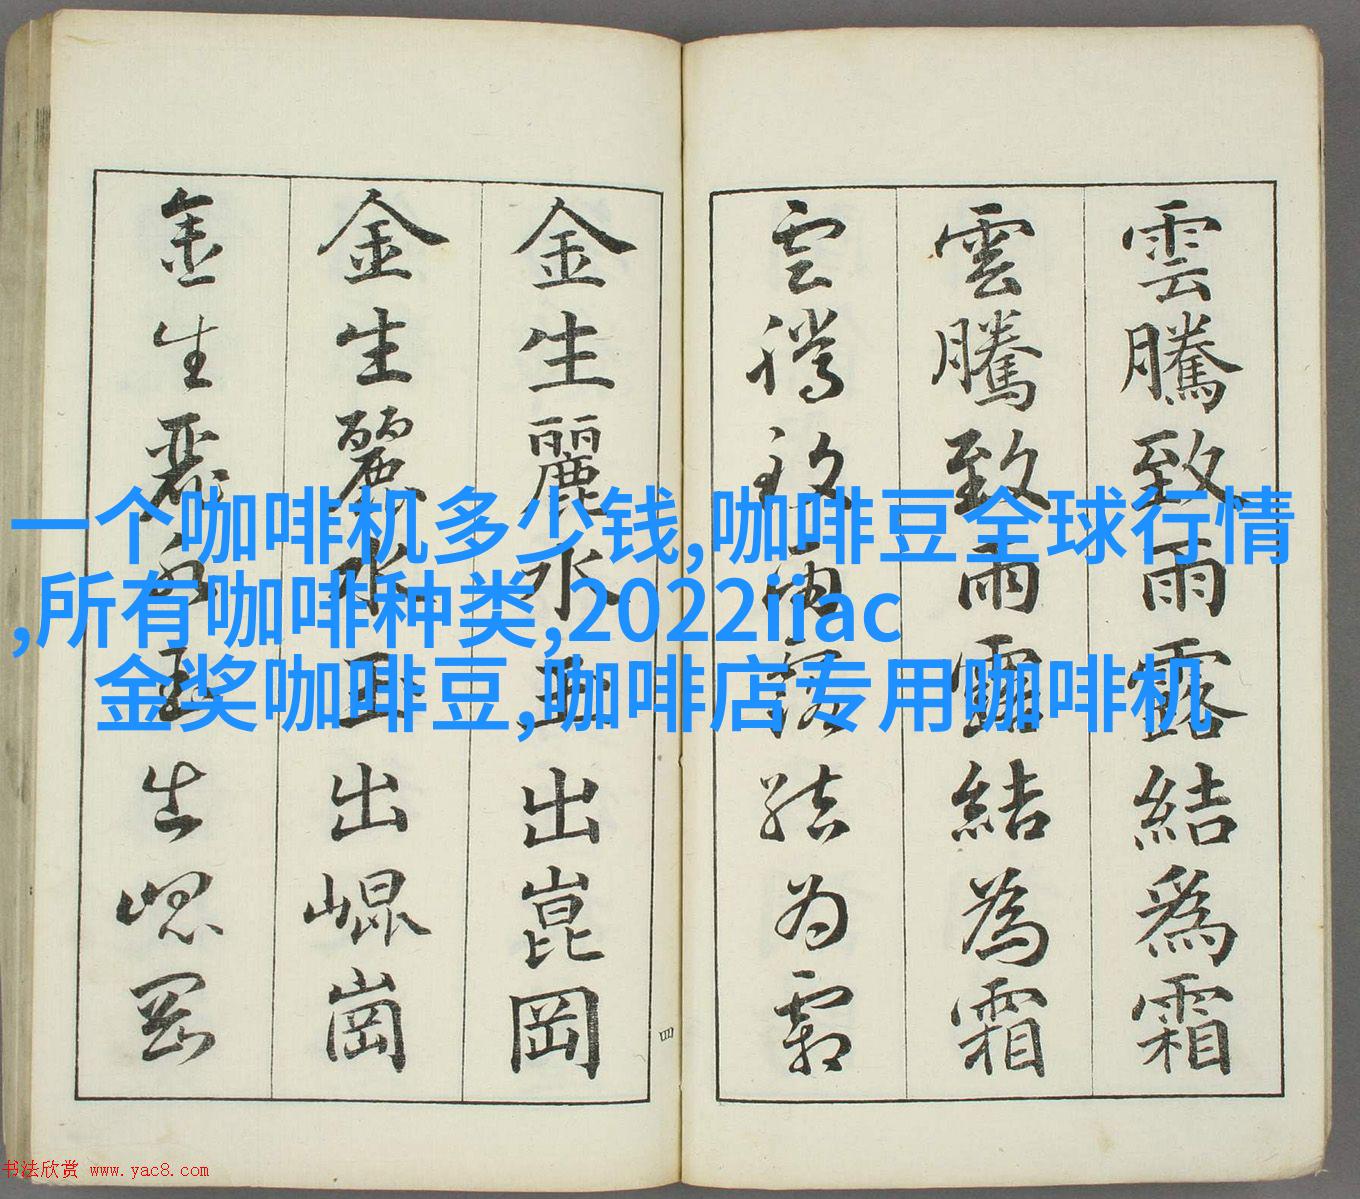 雲騰致雨露結為霜
雲騰致雨露結為霜
雲騰致雨露結為霜
金生麗水玉出崑岡
金生麗水玉出崐崗
金生麗水玉出崐岡
四
一个咖啡机多少钱,咖啡豆全球行情
,所有咖啡种类,2022iiac
金奖咖啡豆,咖啡店专用咖啡机
书法欣赏 www.yac8.com